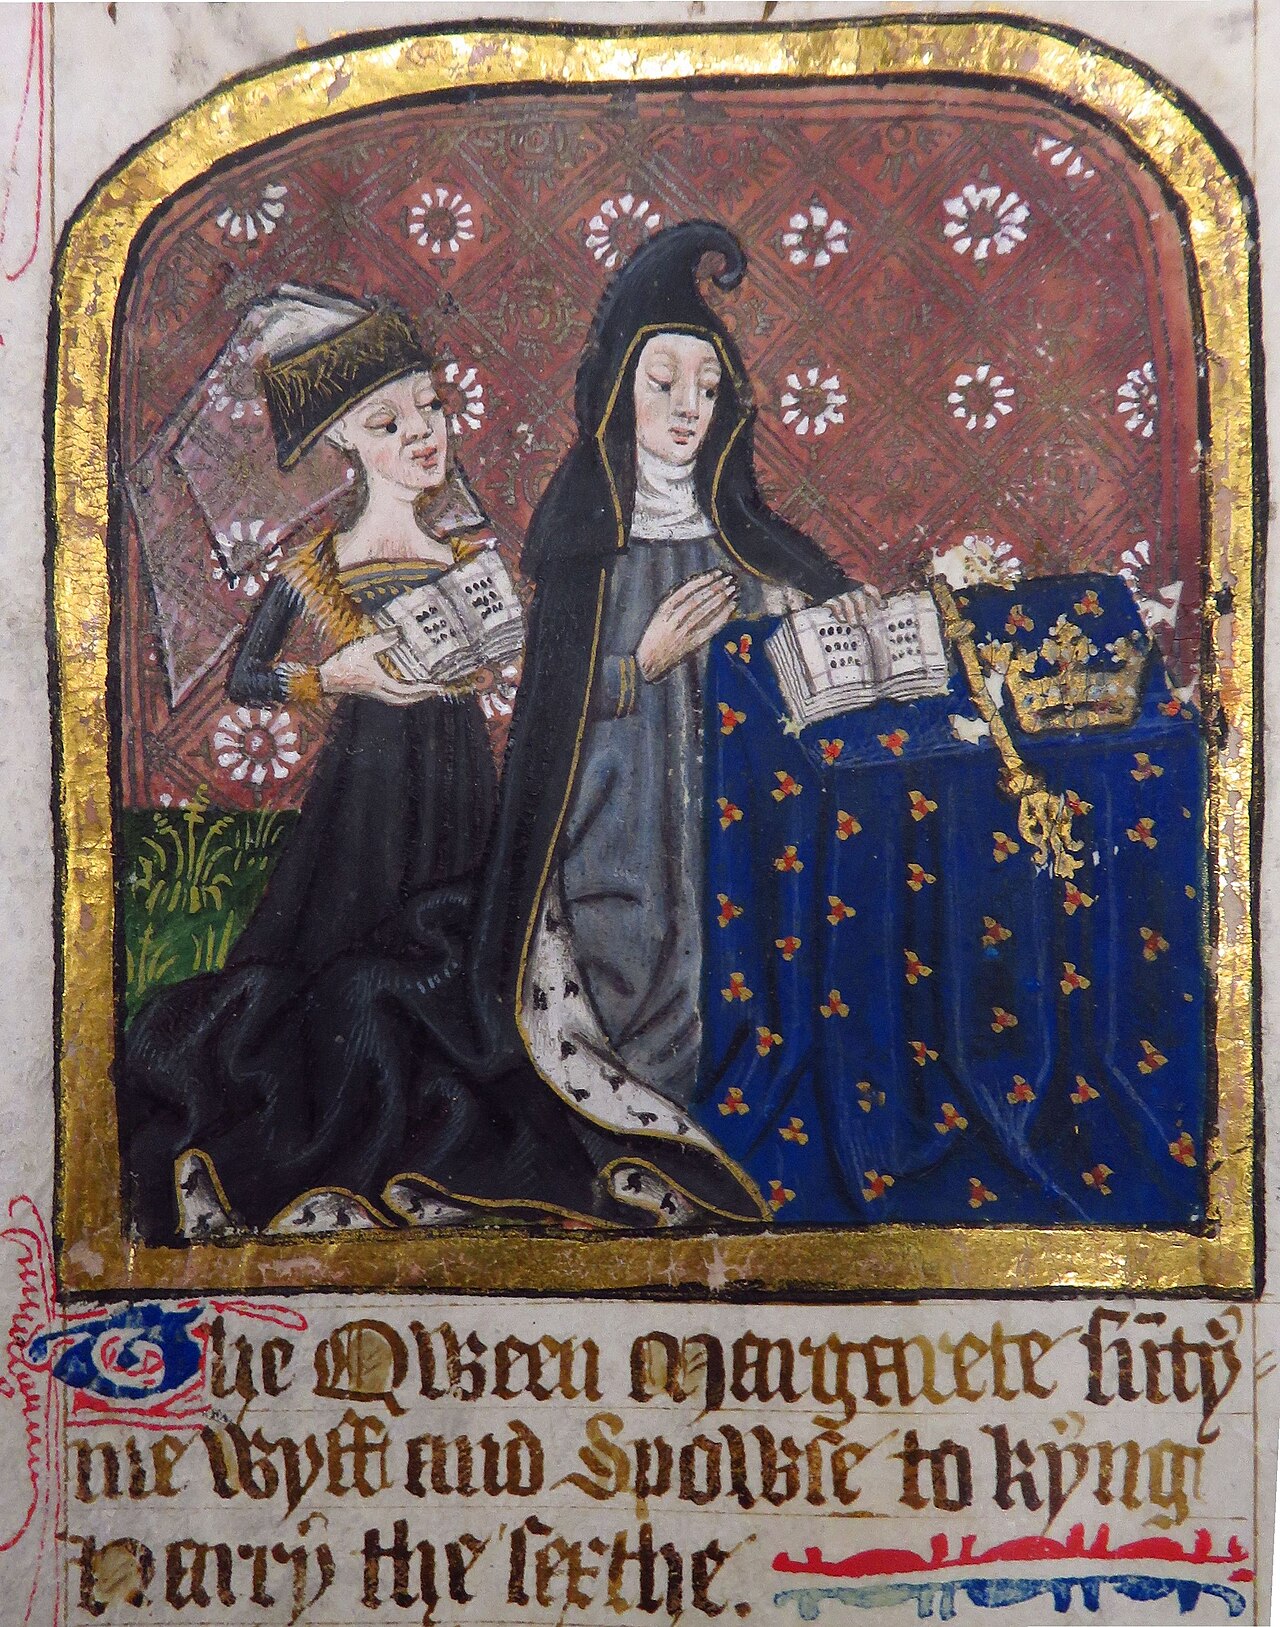 The Qween Margarete su̅ty̅
me wyff and Spowse to kyng
Harry the sexthe.